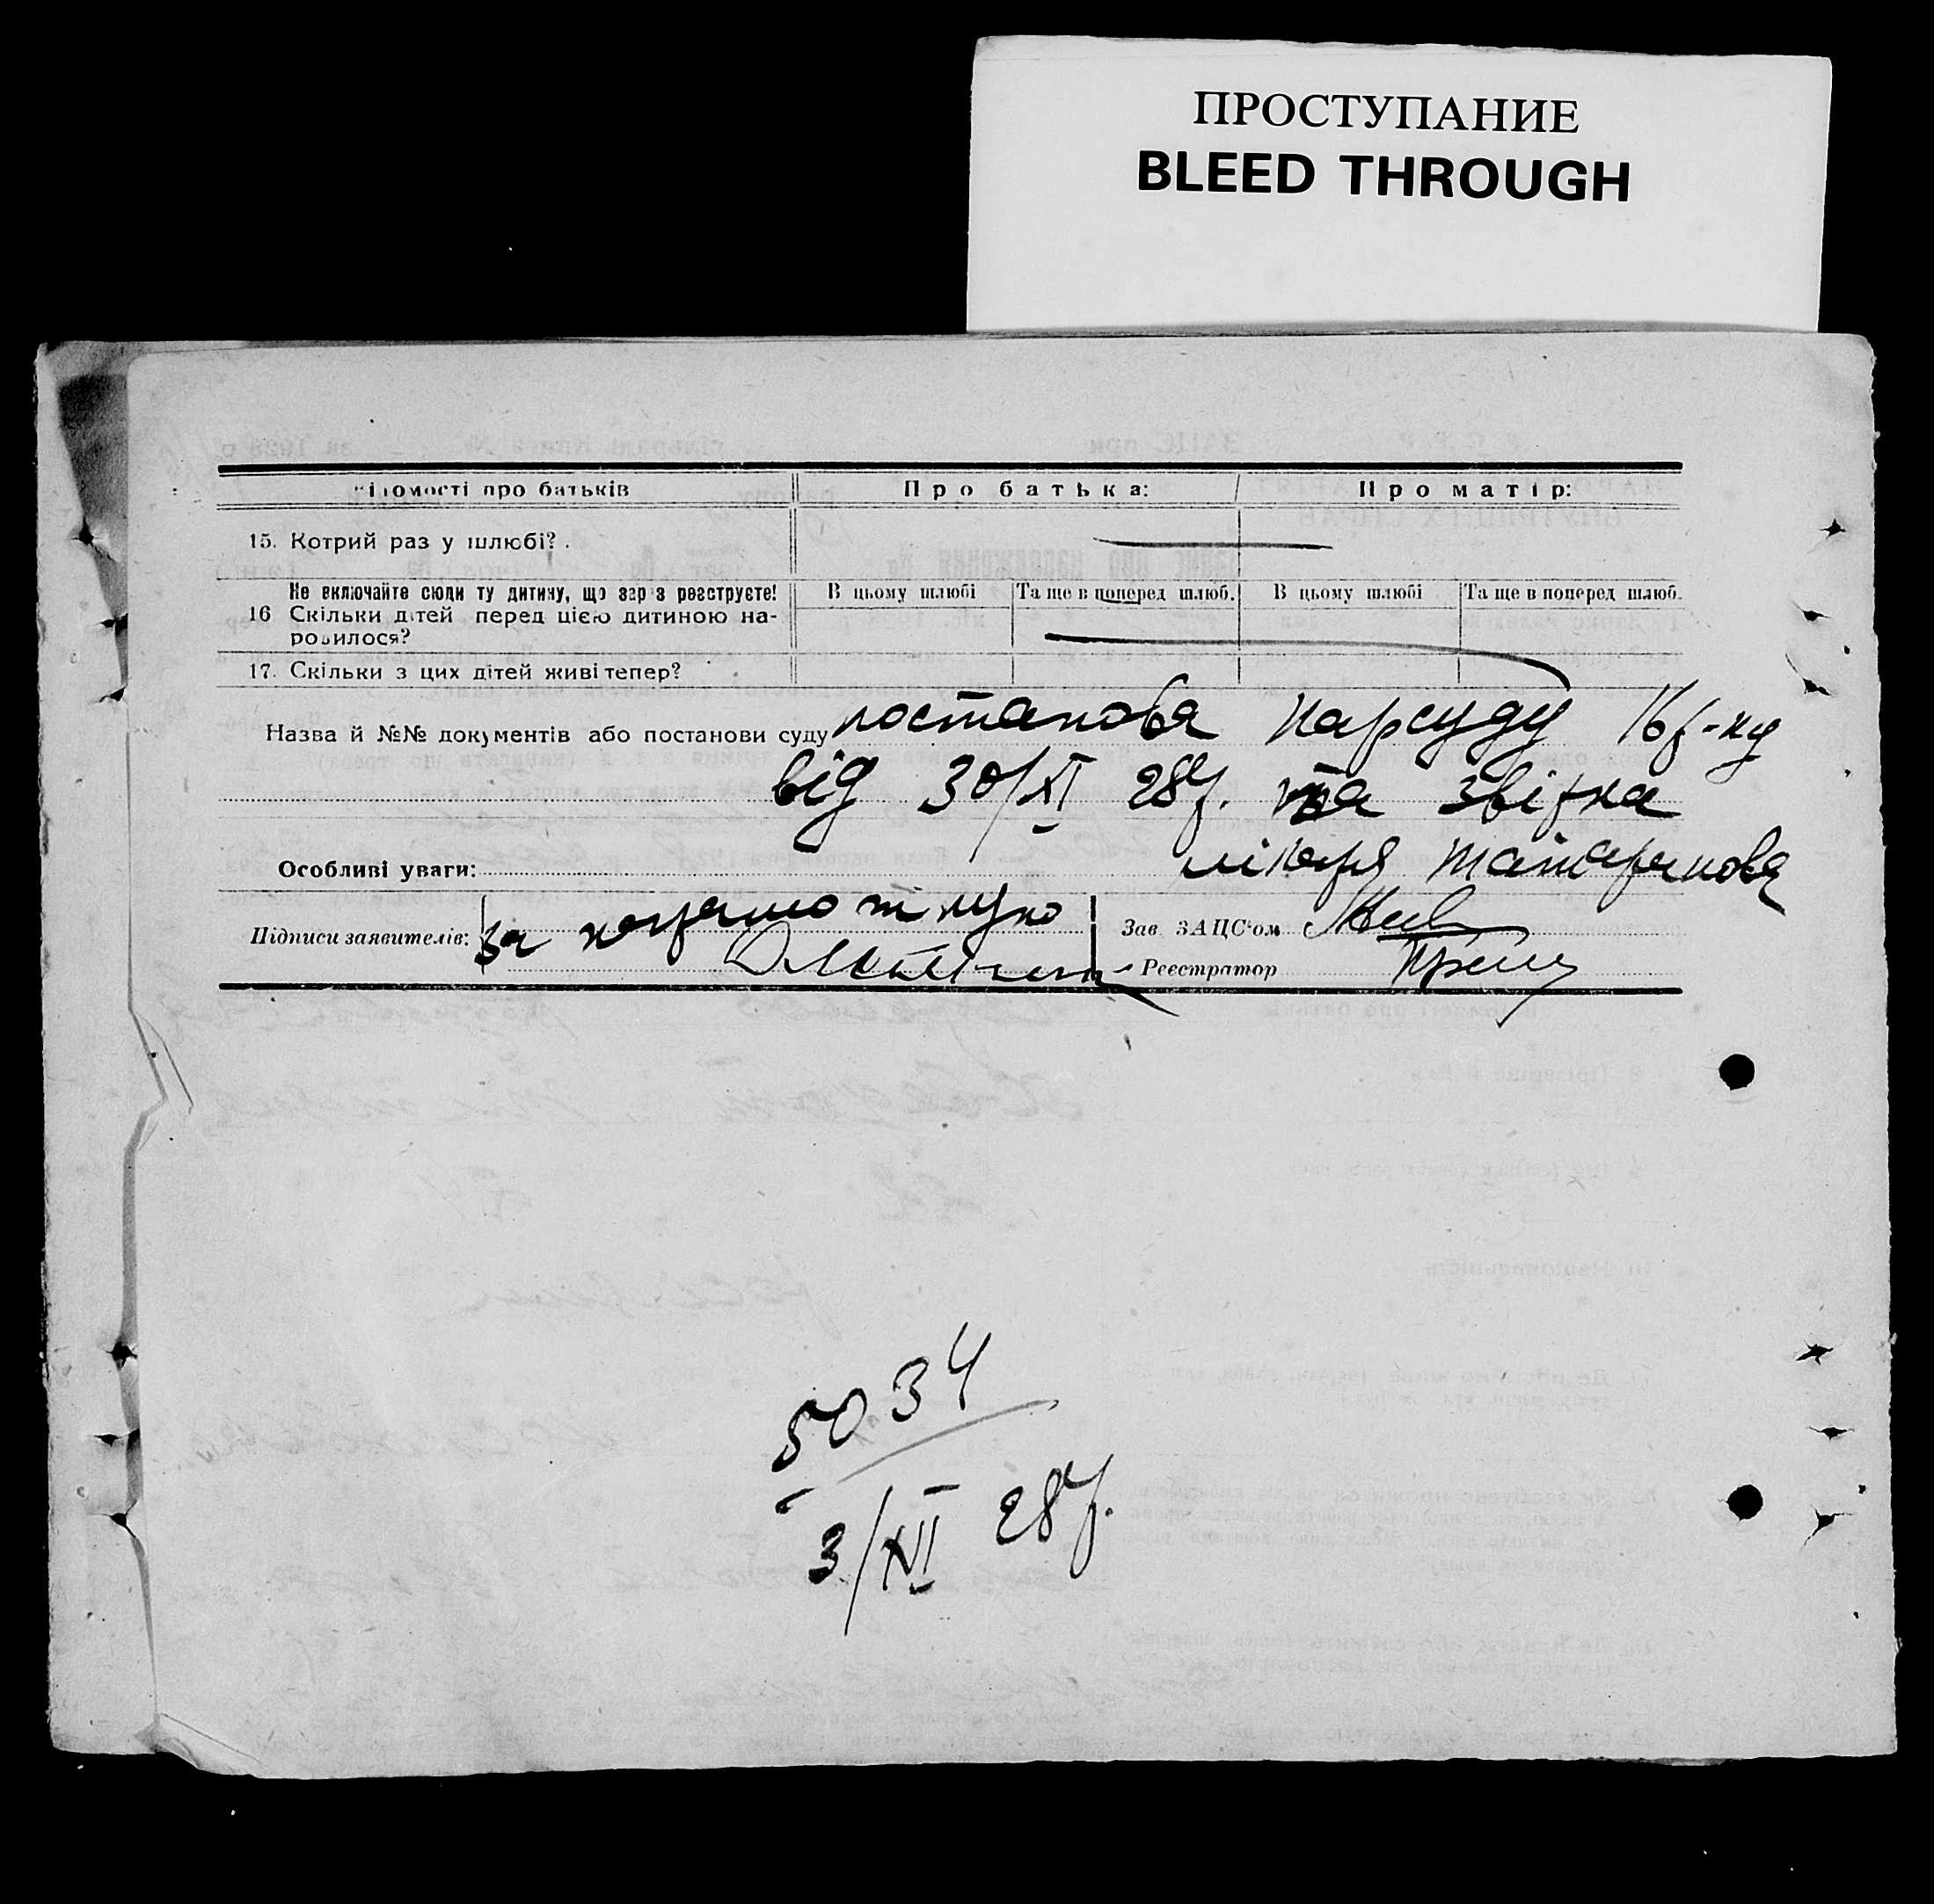 ПРОСТУПАНИЕ
BLEED THROUGH
відомості про батьків Про батька: Про матір:
15. Котрий раз у шлюбі?
Не включайте сюди ту дитину, що зараз реєструєте! В цьому шлюбі Та ще в поперед шлюб. В цьому шлюбі Та ще в поперед шлюб.
16 Скільки дітей перед цією дитиною на-
родилося?
17. Скільки з цих дітей живі тепер?
Назва й №№ документів або постанови суду постанова Нарсуду 16 р-ну
від 30/XI 28 р. та звітка
лікаря
Особливі уваги:
Підписи заявителів: за Зав. ЗАЦС'ом
Реєстратор
5034
3/XII 28 р.